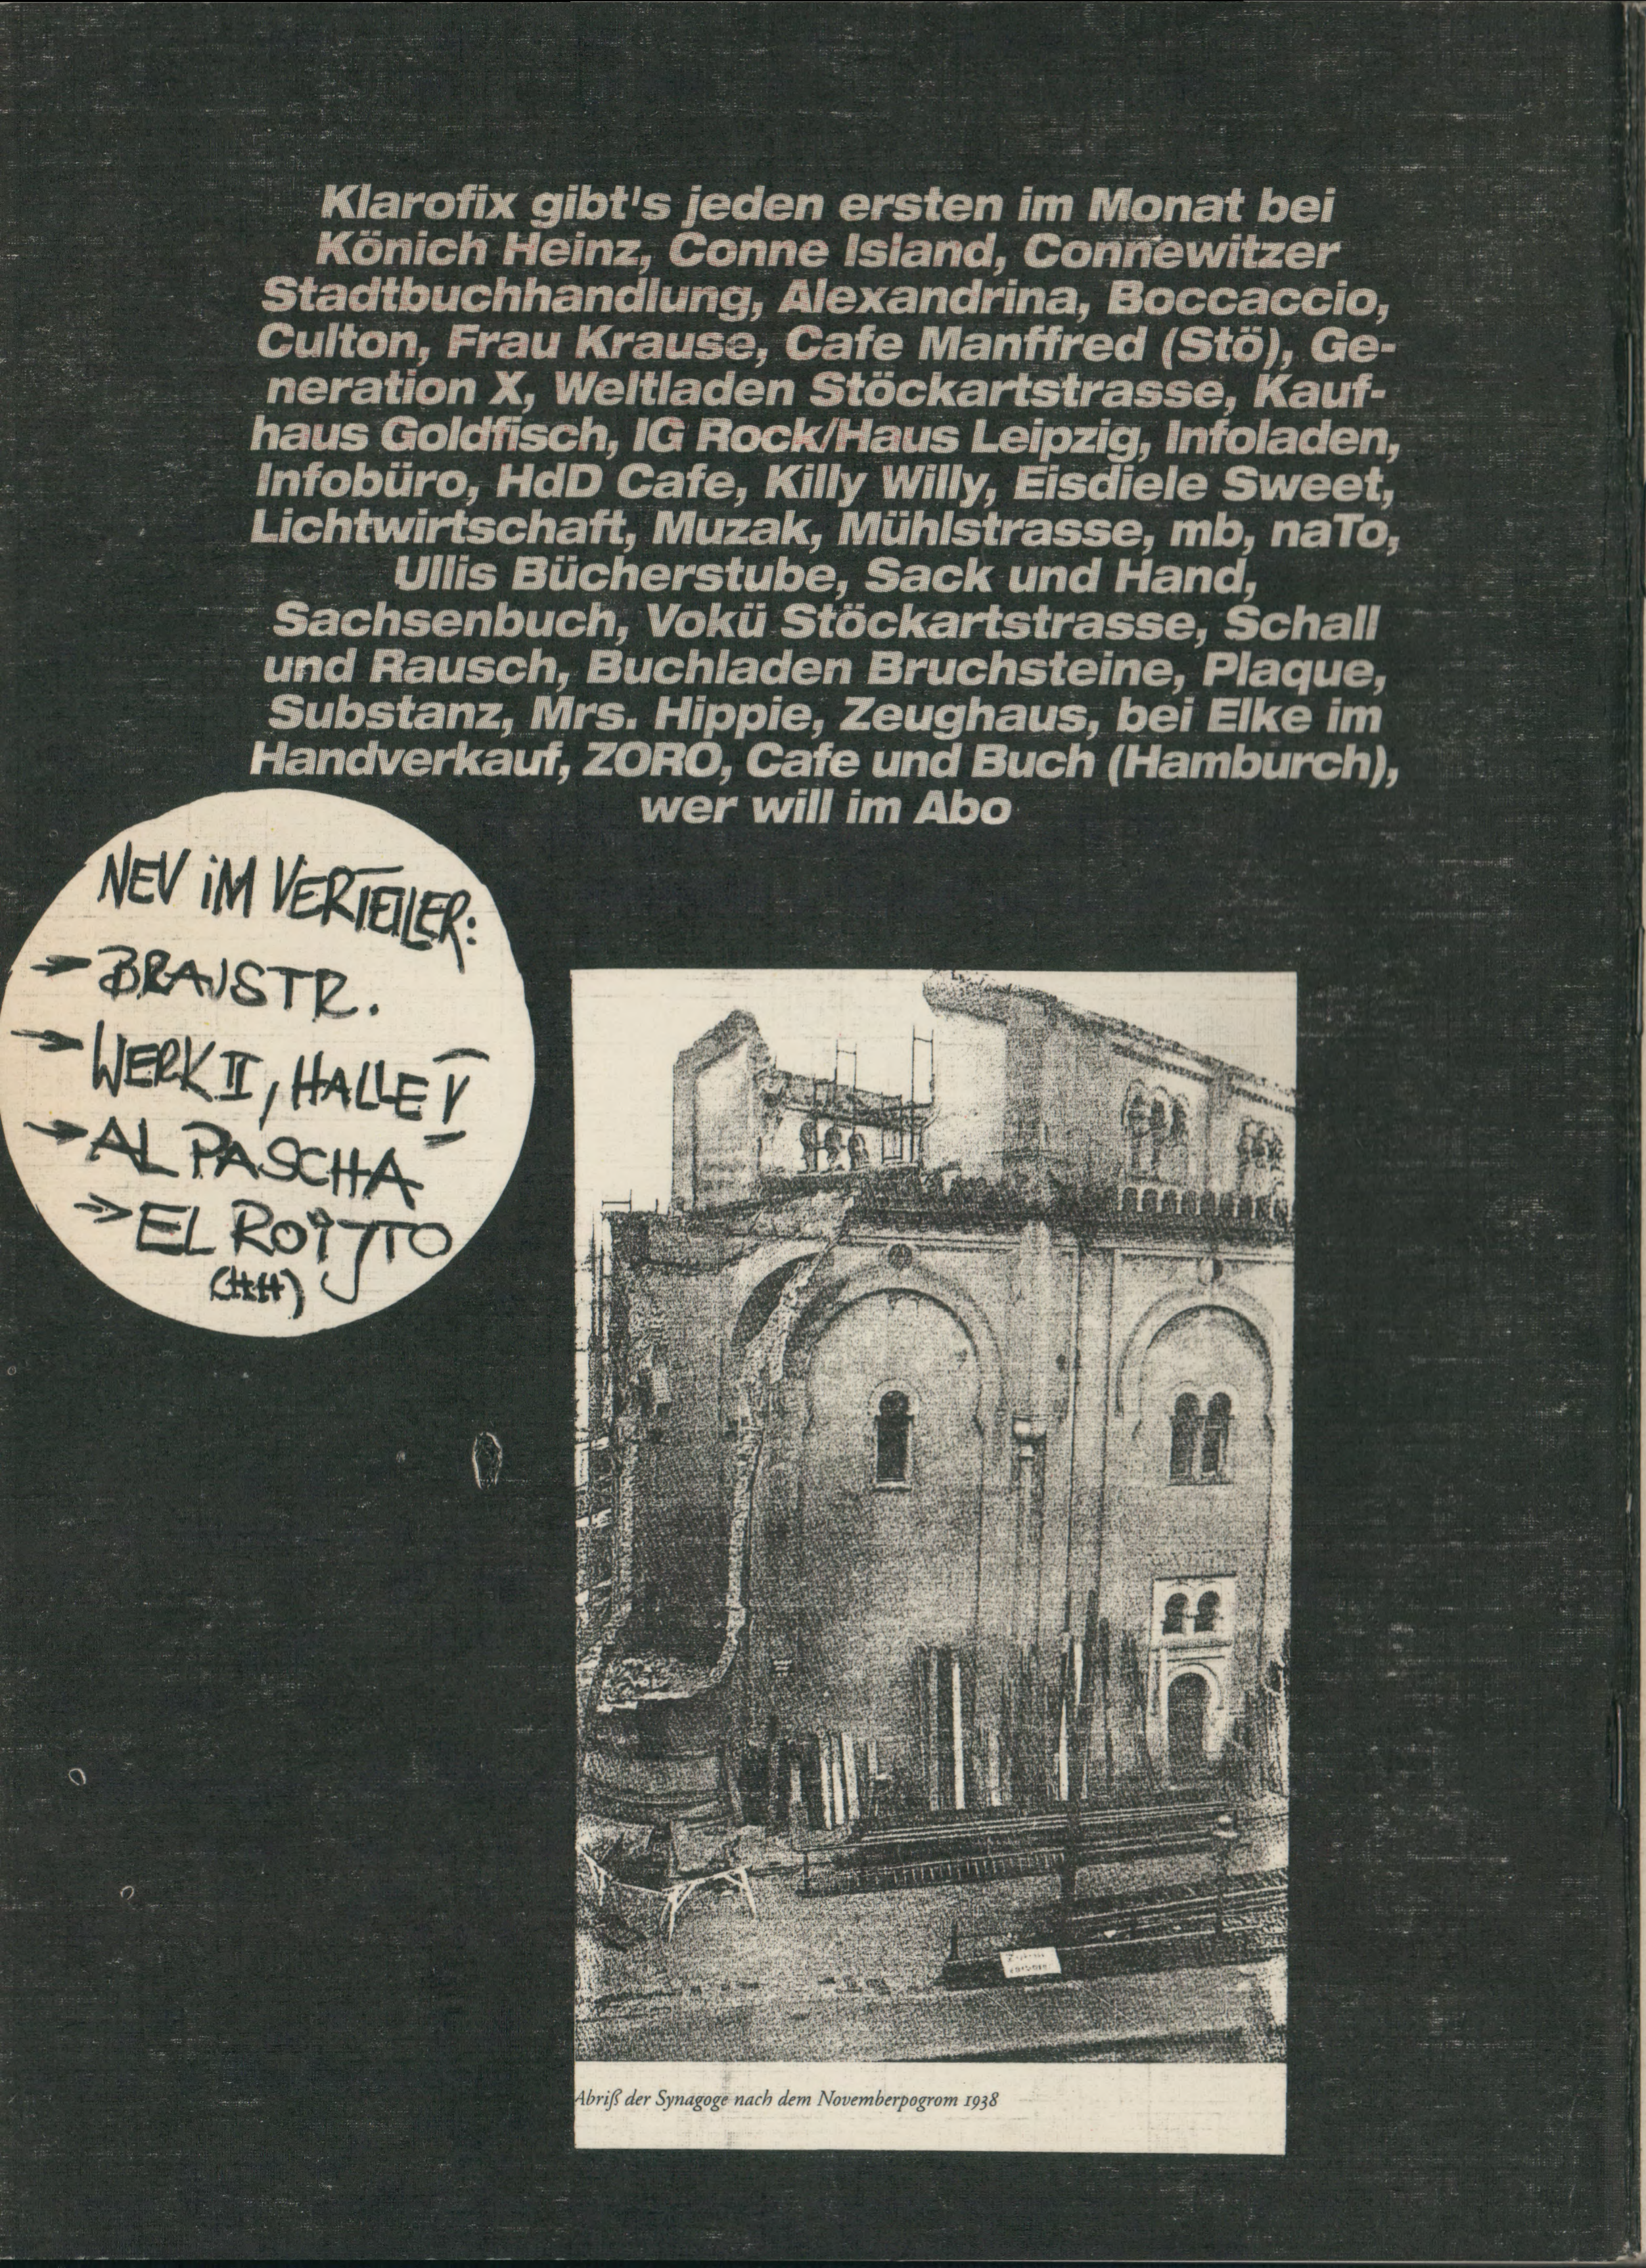 Klarofix gibt's jeden ersten im Monat bei
Könich Heinz, Conne Island, Connewitzer
Stadtbuchhandlung, Alexandrina, Boccaccio,
Culton, Frau Krause, Cafe Manffred (Stö), Ge-
neration X, Weltladen Stöckartstrasse, Kauf-
haus Goldfisch, IG Rock/Haus Leipzig, Infoladen,
Infobüro, HdD Cafe, Killy Willy, Eisdiele Sweet,
Lichtwirtschaft, Muzak, Mühlstrasse, mb, naTo,
Ullis Bücherstube, Sack und Hand,
Sachsenbuch, Vokü Stöckartstrasse, Schall
und Rausch, Buchladen Bruchsteine, Plaque,
Substanz, Mrs. Hippie, Zeughaus, bei Elke im
Handverkauf, ZORO, Cafe und Buch (Hamburch),
wer will im Abo
NEU iM VERTEILER:
BRAUSTR.
WERK II, HALLE V
AL PASCHA
EL ROJJTO
(HH)
Abriß der Synagoge nach dem Novemberpogrom 1938